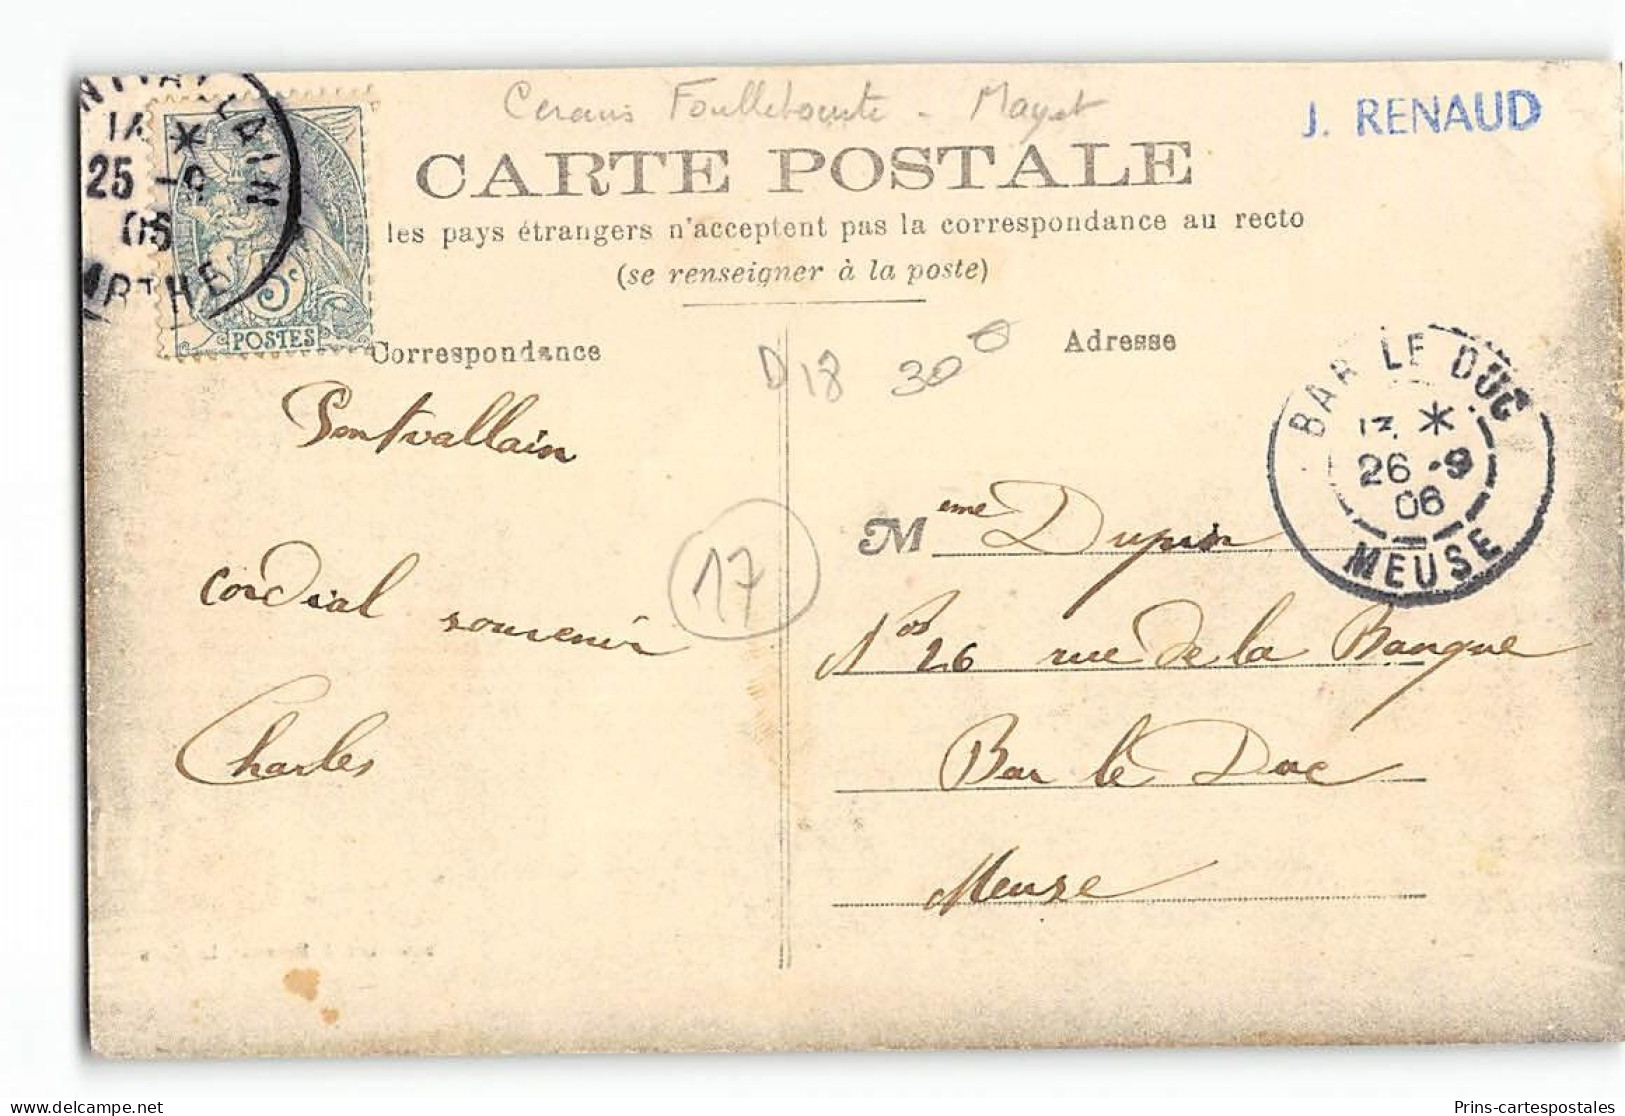 Cerans Foulletourte - Mayet
J. RENAUD
CARTE POSTALE
les pays étrangers n'acceptent pas la correspondance au recto
(se renseigner à la poste)
25 -9
06
5c
POSTES
Correspondance
D18 300
Adresse
Pontvallain
cordial souvenir
Charles
17
BAR LE DUC
26 -9
06
MEUSE
Meme Dupin
Nos 26 rue de la Banque
Bar le Duc
Meuse
Prins-cartespostales